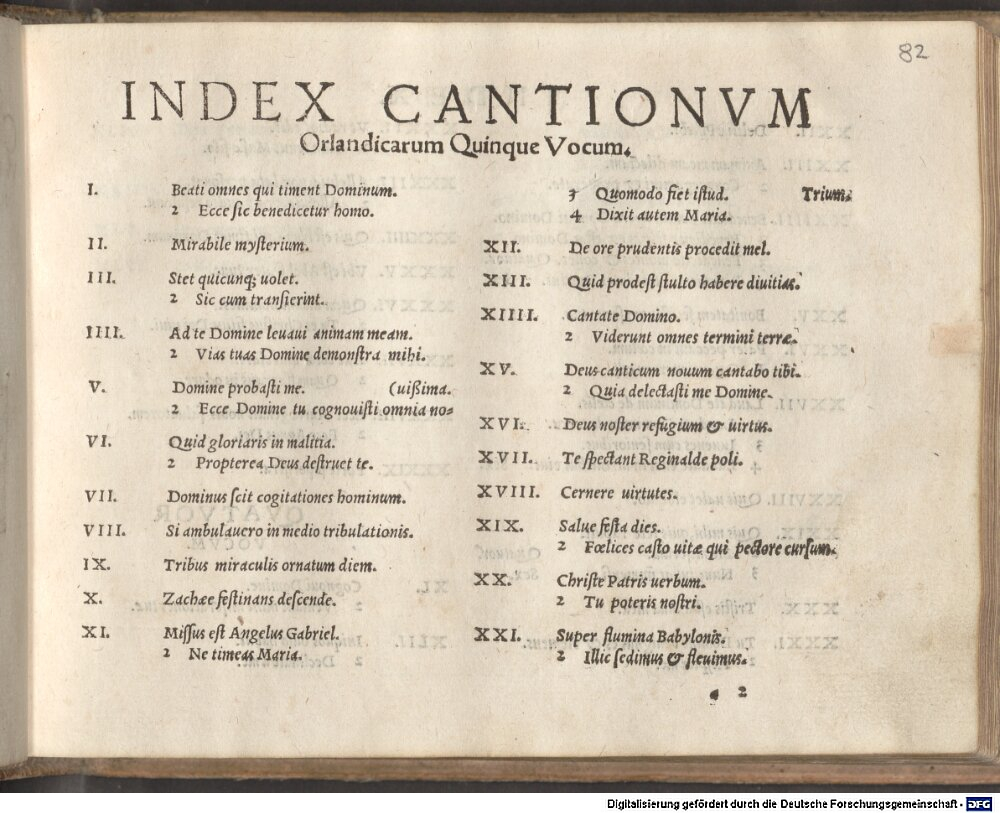 82
INDEX CANTIONVM
Orlandicarum Quinque Vocum.
I. Beati omnes qui timent Dominum.
2 Ecce sic benedicetur homo.
II. Mirabile mysterium.
III. Stet quicunq; uolet.
2 Sic cum transierint.
IIII. Ad te Domine leuaui animam meam.
2 Vias tuas Domine demonstra mihi.
V. Domine probasti me. (uißima.
2 Ecce Domine tu cognouisti omnia no-
VI. Quid gloriaris in malitia.
2 Propterea Deus destruet te.
VII. Dominus scit cogitationes hominum.
VIII. Si ambulauero in medio tribulationis.
IX. Tribus miraculis ornatum diem.
X. Zachæe festinans descende.
XI. Missus est Angelus Gabriel.
2 Ne timeas Maria.
3 Quomodo fiet istud. Trium.
4 Dixit autem Maria.
XII. De ore prudentis procedit mel.
XIII. Quid prodest stulto habere diuitias.
XIIII. Cantate Domino.
2 Viderunt omnes termini terræ.
XV. Deus canticum nouum cantabo tibi.
2 Quia delectasti me Domine.
XVI. Deus noster refugium & uirtus.
XVII. Te spectant Reginalde poli.
XVIII. Cernere uirtutes.
XIX. Salue festa dies.
2 Fœlices casto uitæ qui pectore cursum.
XX. Christe Patris uerbum.
2 Tu poteris nostri.
XXI. Super flumina Babylonis.
2 Illic sedimus & fleuimus.
2
Digitalisierung gefördert durch die Deutsche Forschungsgemeinschaft - DFG